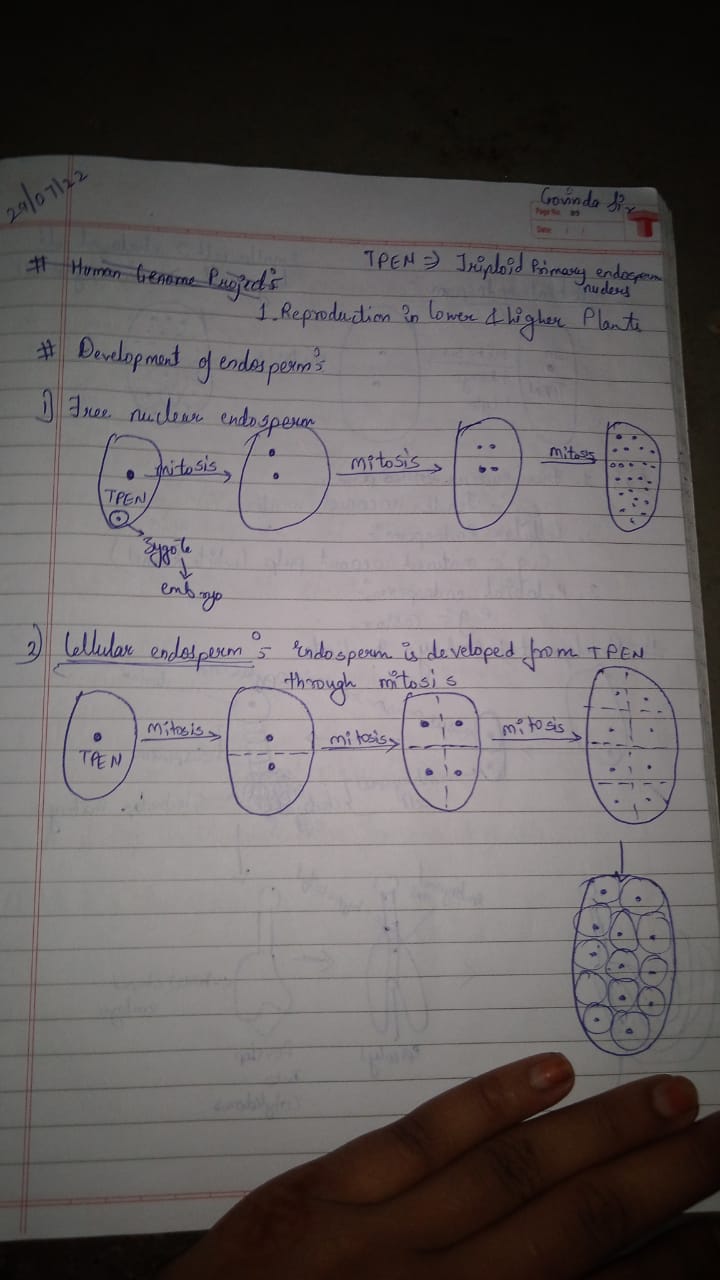 29/07/22
Govinda Sir
Page No. 09
Date: / /
# Human Genome Project :-
TPEN => Triploid Primary endosperm
nucleus
1. Reproduction in lower & higher Plants
# Development of endosperm :-
1) Free nuclear endosperm
mitosis
mitosis
mitosis
TPEN
zygote
embryo
2) Cellular endosperm :- Endosperm is developed from TPEN
through mitosis
mitosis
mitosis
mitosis
TPEN